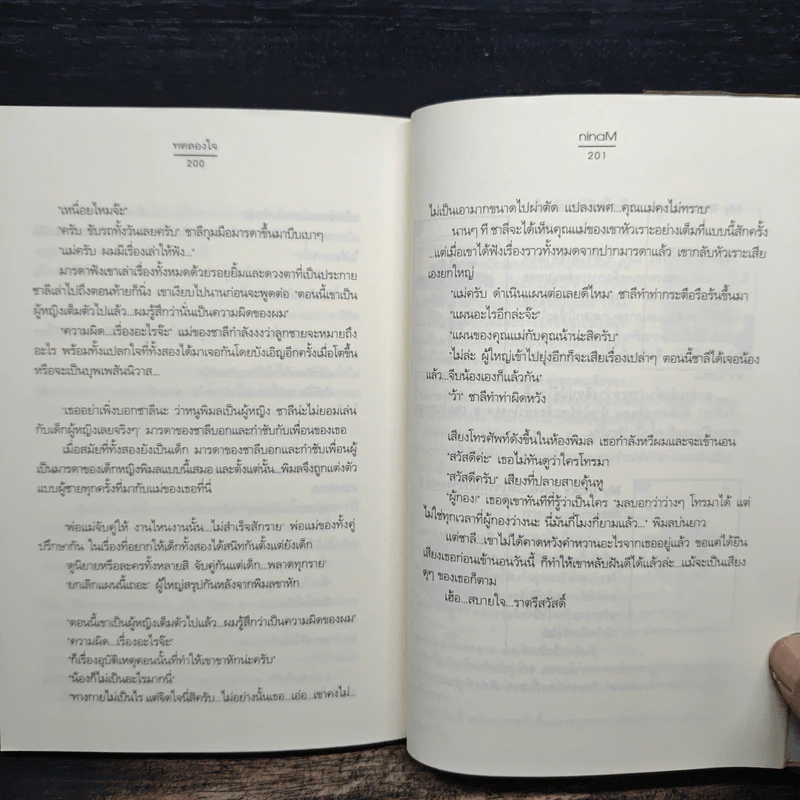 ทดลองใจ
200
"เหนื่อยไหมจ๊ะ"
"ครับ ขับรถทั้งวันเลยครับ" ชาลีกุมมือมารดาขึ้นมาบีบเบาๆ
"แม่ครับ ผมมีเรื่องเล่าให้ฟัง..."
มารดาฟังเขาเล่าเรื่องทั้งหมดด้วยรอยยิ้มและดวงตาที่เป็นประกาย
ชาลีเล่าไปถึงตอนท้ายก็นิ่ง เขาเงียบไปนานก่อนจะพูดต่อ "ตอนนี้เขาเป็น
ผู้หญิงเต็มตัวไปแล้ว...ผมรู้สึกว่านั่นเป็นความผิดของผม"
"ความผิด...เรื่องอะไรจ๊ะ" แม่ของชาลีกำลังงงว่าลูกชายจะหมายถึง
อะไร พร้อมทั้งแปลกใจที่ทั้งสองได้มาเจอกันโดยบังเอิญอีกครั้งเมื่อโตขึ้น
หรือจะเป็นบุพเพสันนิวาส...
"เธออย่าเพิ่งบอกชาลีนะ ว่าหนูพิมลเป็นผู้หญิง ชาลีน่ะไม่ยอมเล่น
กับเด็กผู้หญิงเลยจริงๆ" มารดาของชาลีบอกและกำชับกับเพื่อนของเธอ
เมื่อสมัยที่ทั้งสองยังเป็นเด็ก มารดาของชาลีบอกและกำชับเพื่อนผู้
เป็นมารดาของเด็กหญิงพิมลแบบนี้เสมอ และตั้งแต่นั้น...พิมลจึงถูกแต่งตัว
แบบผู้ชายทุกครั้งที่มากับแม่ของเธอที่นี่
"พ่อแม่จับคู่ให้ งานไหนงานนั้น...ไม่สำเร็จสักราย" พ่อแม่ของทั้งคู่
ปรึกษากัน ในเรื่องที่อยากให้เด็กทั้งสองได้สนิทกันตั้งแต่ยังเด็ก
"ดูนิยายหรือละครทั้งหลายสิ จับคู่กันแต่เด็ก...พลาดทุกราย"
"ยกเลิกแผนนี้เถอะ" ผู้ใหญ่สรุปกันหลังจากพิมลขาหัก
"ตอนนี้เขาเป็นผู้หญิงเต็มตัวไปแล้ว...ผมรู้สึกว่าเป็นความผิดของผม"
"ความผิด...เรื่องอะไรจ๊ะ"
"ก็เรื่องอุบัติเหตุตอนนั้นที่ทำให้เขาขาหักน่ะครับ"
"น้องก็ไม่เป็นอะไรมากนี่"
"ทางกายไม่เป็นไร แต่จิตใจนี่สิครับ...ไม่อย่างนั้นเธอ...เอ่อ...เขาคงไม่...
ninaM
201
ไม่เป็นเอามากขนาดไปผ่าตัด แปลงเพศ...คุณแม่คงไม่ทราบ"
นานๆ ที ชาลีจะได้เห็นคุณแม่ของเขาหัวเราะอย่างเต็มที่แบบนี้สักครั้ง
...แต่เมื่อเขาได้ฟังเรื่องราวทั้งหมดจากปากมารดาแล้ว เขากลับหัวเราะเสีย
เองยกใหญ่
"แม่ครับ ดำเนินแผนต่อเลยดีไหม" ชาลีทำท่ากระตือรือร้นขึ้นมา
"แผนอะไรอีกล่ะจ๊ะ"
"แผนของคุณแม่กับคุณน้าน่ะสิครับ"
"ไม่ล่ะ ผู้ใหญ่เข้าไปยุ่งอีกก็จะเสียเรื่องเปล่าๆ ตอนนี้ชาลีได้เจอน้อง
แล้ว...จีบน้องเองก็แล้วกัน"
"ว้า" ชาลีทำท่าผิดหวัง
เสียงโทรศัพท์ดังขึ้นในห้องพิมล เธอกำลังหวีผมและจะเข้านอน
"สวัสดีค่ะ" เธอไม่ทันดูว่าใครโทรมา
"สวัสดีครับ" เสียงที่ปลายสายคุ้นหู
"ผู้กอง!" เธอดุเขาทันทีที่รู้ว่าเป็นใคร "มลบอกว่าว่างๆ โทรมาได้ แต่
ไม่ใช่ทุกเวลาที่ผู้กองว่างนะ นี่มันกี่โมงกี่ยามแล้ว..." พิมลบ่นยาว
แต่ชาลี...เขาไม่ได้คาดหวังคำหวานอะไรจากเธออยู่แล้ว ขอแค่ได้ยิน
เสียงเธอก่อนเข้านอนวันนี้ ก็ทำให้เขาหลับฝันดีได้แล้วล่ะ...แม้จะเป็นเสียง
ดุๆ ของเธอก็ตาม
เฮ้อ...สบายใจ...ราตรีสวัสดิ์